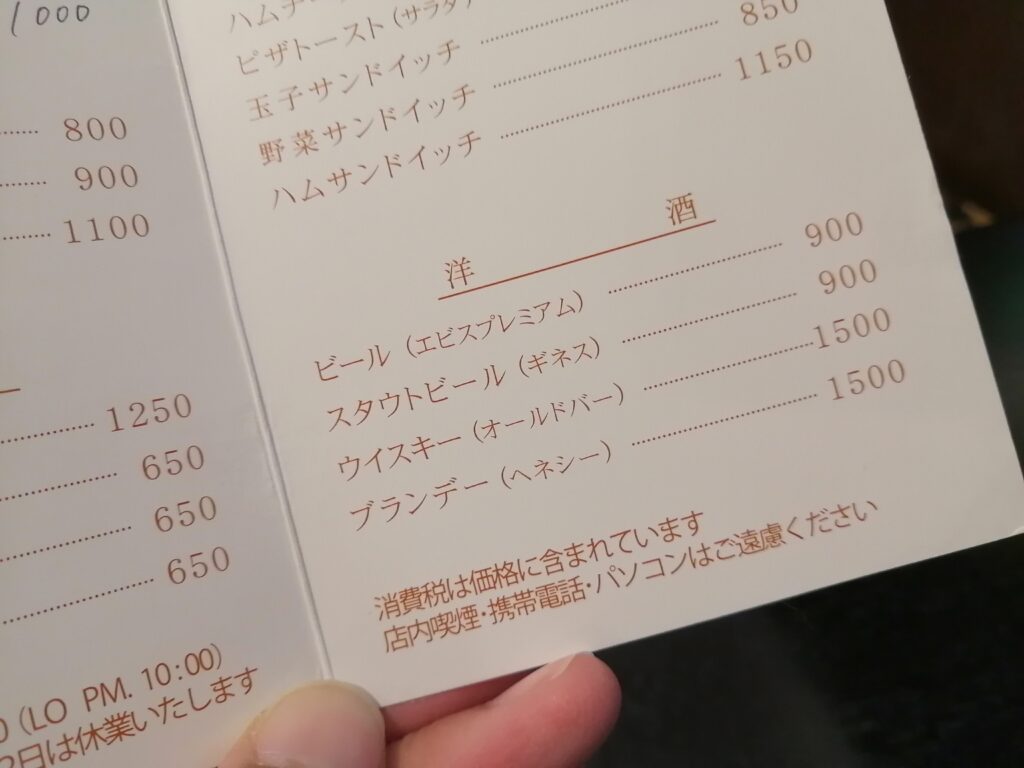 1000
800
900
1100
1250
650
650
650
(LO PM. 10:00)
日は休業いたします
ピザトースト(サラダ
玉子サンドイッチ
野菜サンドイッチ 850
ハムサンドイッチ 1150
洋 酒
ビール (エビスプレミアム) 900
スタウトビール (ギネス) 900
ウイスキー (オールドパー) 1500
ブランデー (ヘネシー) 1500
消費税は価格に含まれています
店内喫煙・携帯電話・パソコンはご遠慮ください